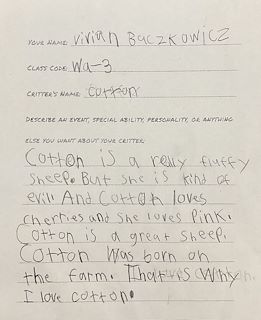 YOUR NAME: Vivian Baczkowicz
CLASS CODE: Wa-3
CRITTER'S NAME: Cotton
DESCRIBE AN EVENT, SPECIAL ABILITY, PERSONALITY, OR ANYTHING
ELSE YOU WANT ABOUT YOUR CRITTER:
Cotton is a relly fluffy
sheep. But she is kind of
evil. And Cotton loves
cherries and she loves Pink.
Cotton is a great sheep.
Cotton was born on
the farm. That is why
I love cotton.